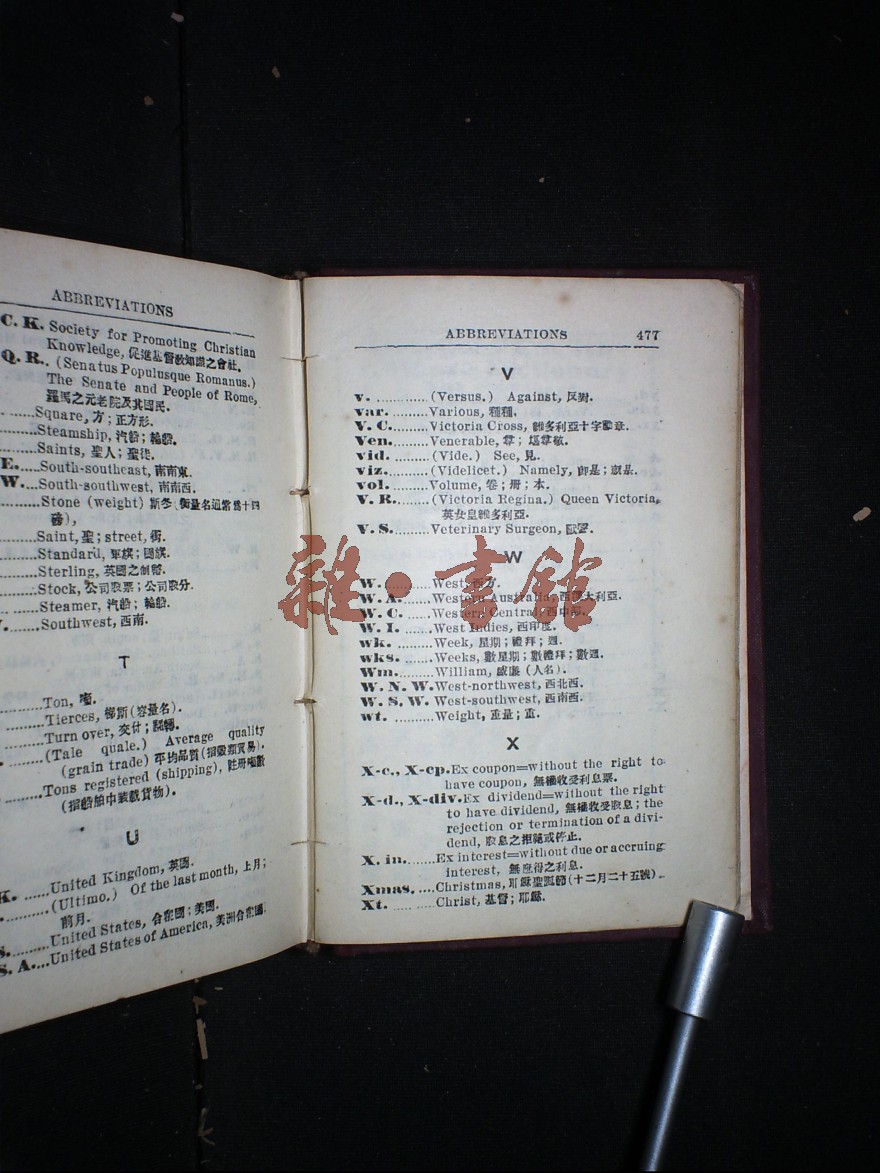 ABBREVIATIONS
C. K. Society for Promoting Christian
Knowledge, 促進基督教知識之會社.
Q. R.. (Senatus Populusque Romanus.)
The Senate and People of Rome,
羅馬之元老院及其國民.
........Square, 方; 正方形.
........Steamship, 汽船; 輪船.
........Saints, 聖人; 聖徒.
E.....South-southeast, 南南東.
W....South-southwest, 南南西.
........Stone (weight) 斯冬, 衡量名通常爲十四
磅),
........Saint, 聖; street, 街.
........Standard, 軍旗; 國旗.
........Sterling, 英國之制幣.
........Stock, 公司股票; 公司股分.
........Steamer, 汽船; 輪船.
........Southwest, 西南.
T
........Ton, 噸.
........Tierces, (容量名).
........Turn over, 交付; 試轉.
........(Tale quale.) Average quality
(grain trade) 平均品質(指穀類貿易).
........Tons registered (shipping), 註冊噸數
(指船舶中裝載貨物).
U
K. ......United Kingdom, 英國.
..........(Ultimo.) Of the last month, 上月;
前月.
S..........United States, 合衆國; 美國.
S. A....United States of America, 美洲合衆國.
ABBREVIATIONS 477
V
v. ..........(Versus.) Against, 反對.
var. .........Various, 種種.
V. C.........Victoria Cross, 維多利亞十字勳章.
Ven..........Venerable, 尊; 堪尊敬.
vid. .........(Vide.) See, 見.
viz...........(Videlicet.) Namely, 卽是; 就是.
vol...........Volume, 卷; 册; 本.
V. R.........(Victoria Regina.) Queen Victoria,
英女皇維多利亞.
V. S..........Veterinary Surgeon, 獸醫.
W
W. ..........West, 西方.
W. A. ......Western Australia, 西澳大利亞.
W. C. ......Western Central, 西中部.
W. I. .......West Indies, 西印度.
wk. .........Week, 星期; 禮拜; 週.
wks. ........Weeks, 數星期; 數禮拜; 數週.
Wm..........William, 威廉 (人名).
W. N. W.West-northwest, 西北西.
W. S. W. West-southwest, 西南西.
wt. ..........Weight, 重量; 重.
雜·書館
X
X-c., X-cp.Ex coupon=without the right to
have coupon, 無權收受利息票.
X-d., X-div.Ex dividend=without the right
to have dividend, 無權收受股息; the
rejection or termination of a divi-
dend, 股息之拒絕或停止.
X. in........Ex interest=without due or accruing
interest, 無應得之利息.
Xmas. ....Christmas, 耶穌聖誕節(十二月二十五號).
Xt. ..........Christ, 基督; 耶穌.